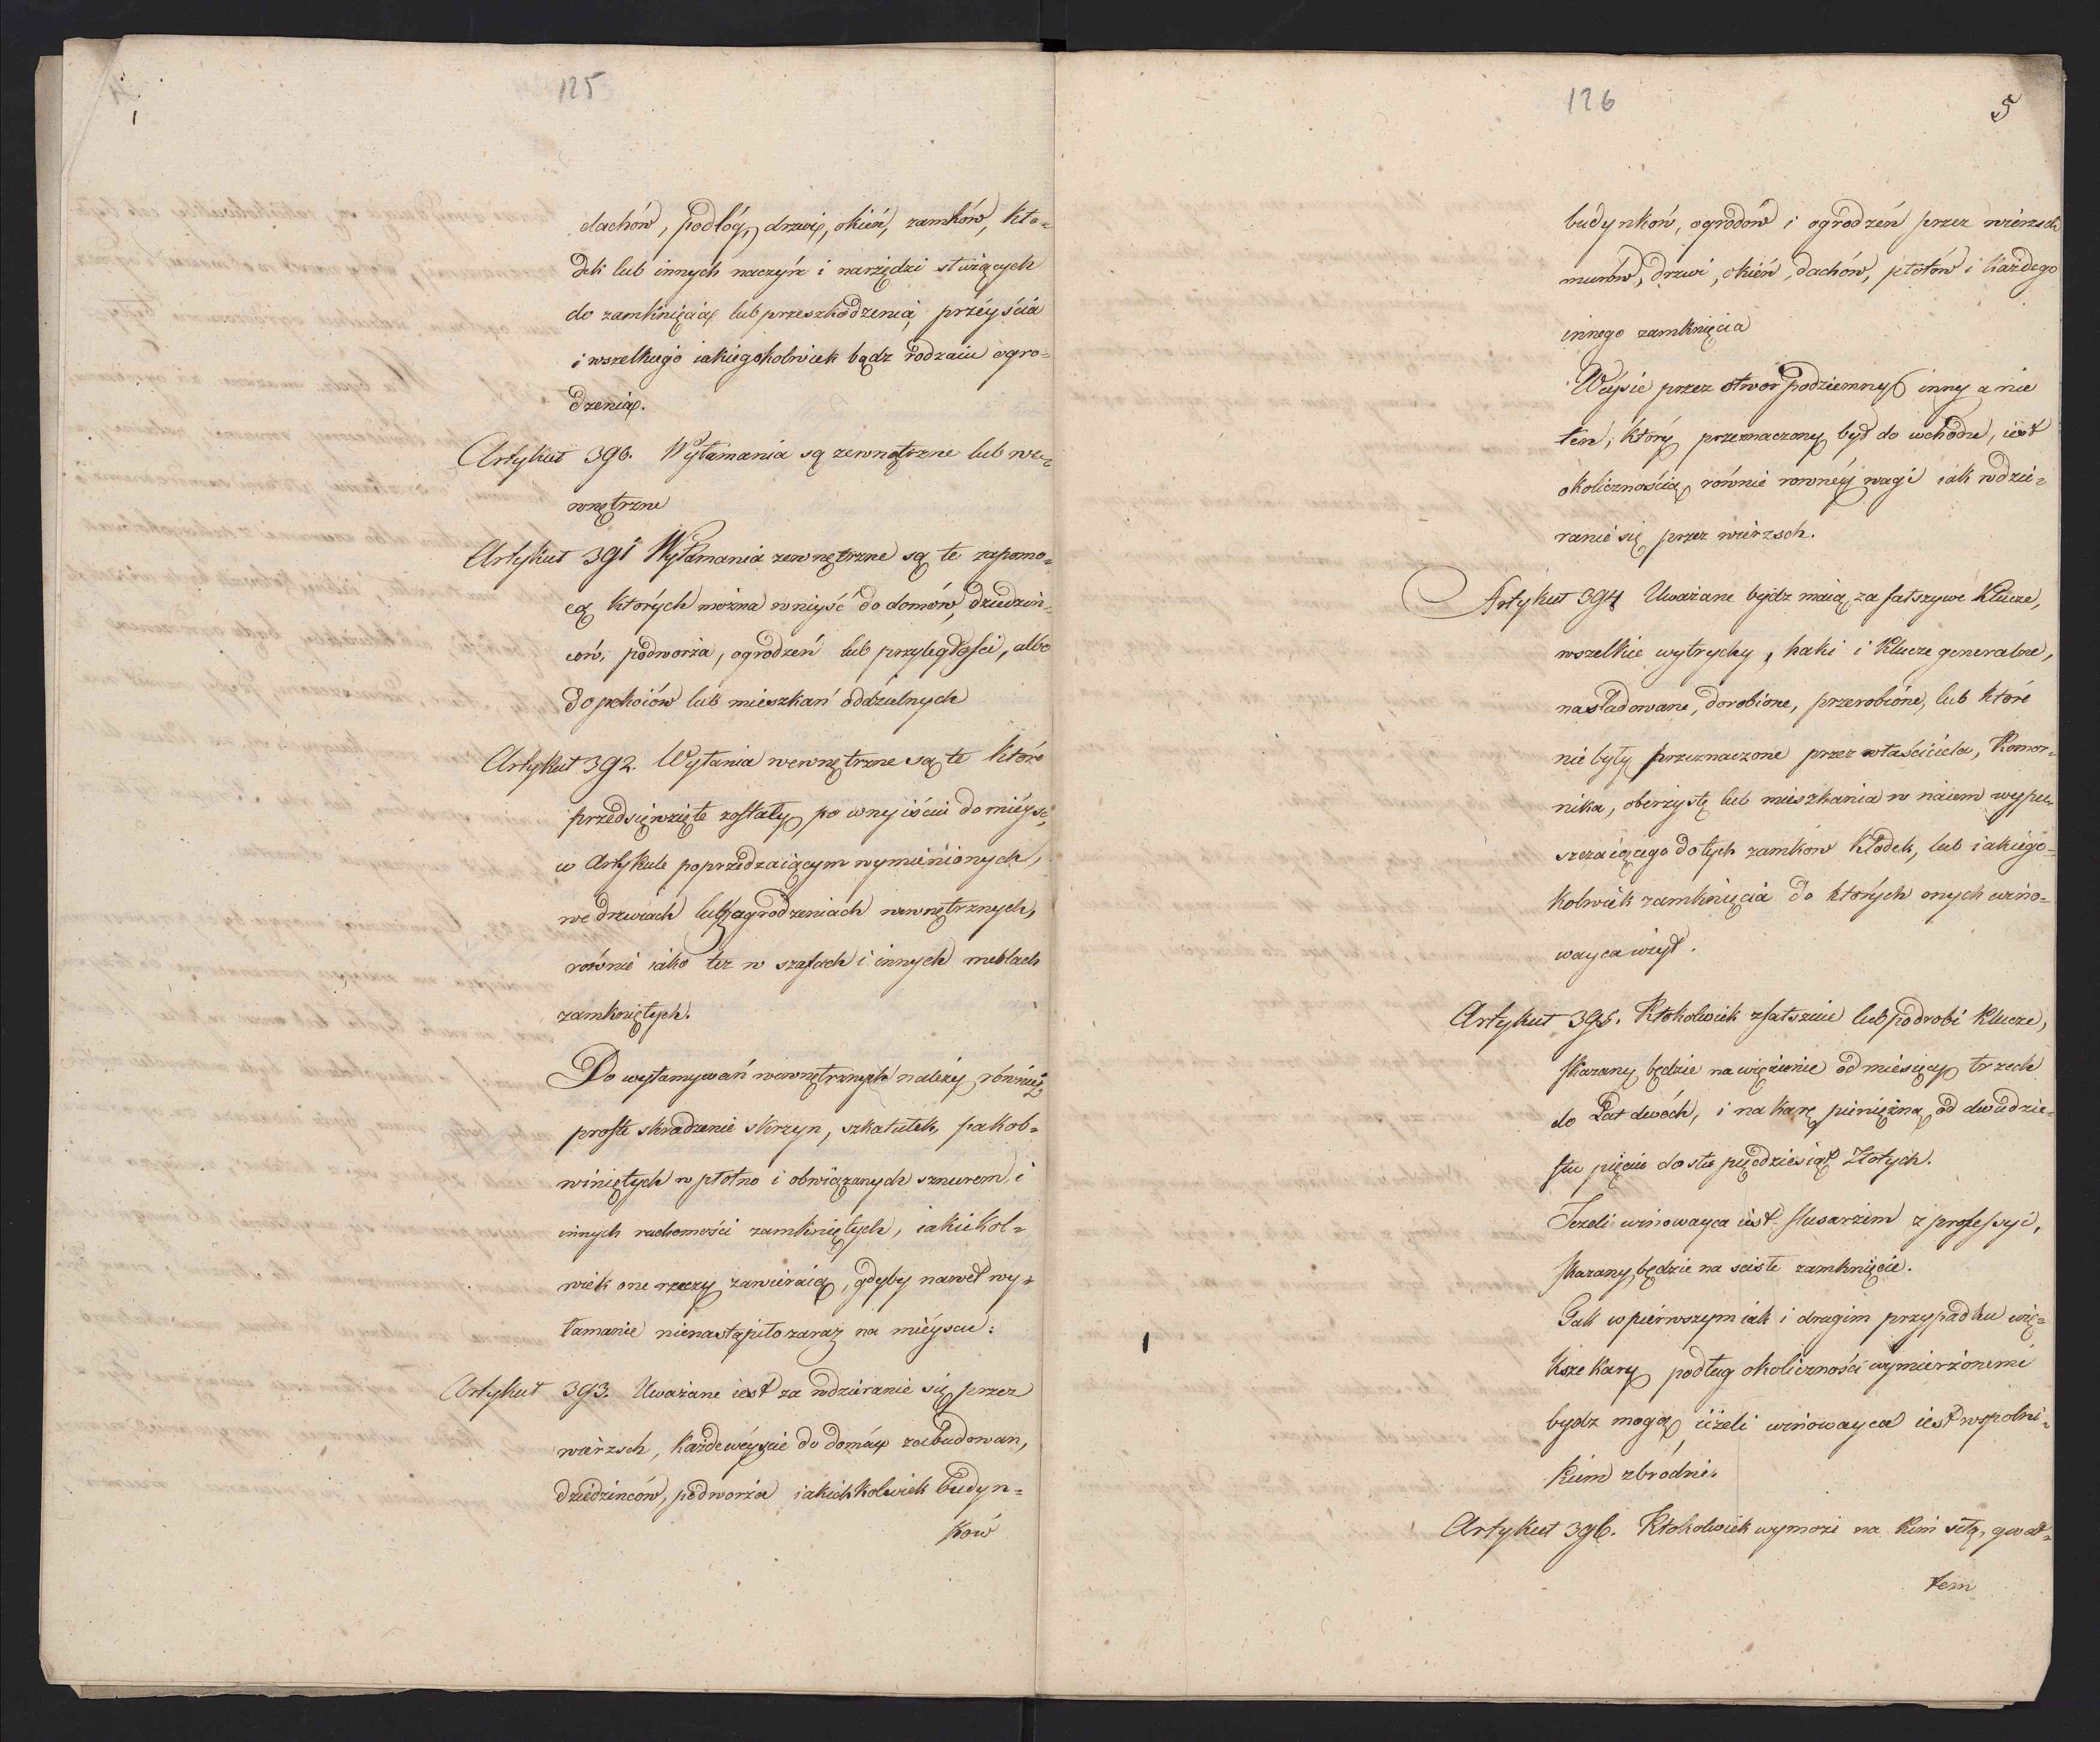 125
dachów, podłóg, drzwi, okien, zamków, kło=
dek lub innych naczyń i narzędzi służących
do zamknięcia lub przeszkodzenia przéyścia
i wszelkiego iakiegokolwiek bądz rodzaiu ogro=
dzenia.
Artykuł 390. Wyłamania są zewnętrzne lub we=
wnętrzne
Artykuł 391 Wyłamania zewnętrzne są te zapomo=
cą których można wniyść do domów, dziedziń=
ców, podworża, ogrodzeń lub przyległości, albo
do pokoiów lub mieszkań oddzielnych
Artykuł 392. Wyłania wewnętrzne są te które
przedsięwzięte zostały po wnyiściu do mieysc,
w Artykule poprzedzaiącym wymienionych,
we drzwiach lub zagrodzeniach wewnętrznych,
rownie iako też w szafach i innych meblach
zamkniętych.
Do wyłamywań wewnętrznych należy również
proste skradzenie skrzyn, szkatułek, pak ob=
winiętych w płótno i obwiązanych sznurem, i
innych ruchomości zamkniętych, iakiekol=
wiek one rzeczy zawieraią, gdyby nawet wy=
łamanie nienastąpiło zaraz na miéyscu:
Artykuł 393. Uważane iest za wdzieranie się przez
wierzsch, każde wéyście do domów zabudowan,
dziedzinców, podworża iakichkolwiek budyn=
ków
126
5
budynków, ogrodów i ogrodzeń przez wierzsch
murów, drzwi, okien, dachów, płotów i każdego
innego zamknięcia
Wéjście przez otwor podziemny inny a nie
ten, który przeznaczony był do wchodu, iest
okolicznością równie rownéy wagi iak wdzie=
ranie się przez wierzsch.
Artykuł 394 Uważane bydz maią za fałszywe klucze,
wszelkie wytrychy, haki i klucze generalne,
nasladowane, dorobione, przerobione, lub które
nie były przeznaczone przez właściciela, Komor=
nika, oberzystę lub mieszkania w naiem wypu=
szczaiącego do tych zamków kłodek, lub iakiego=
kolwiek zamknięcia do których onych wino=
wayca użył.
Artykuł 395. Ktokolwiek zfałszuie lub podrobi klucze,
skazany będzie na więzienie od miesięcy trzech
do Lat dwóch, i na karę pieniężną od dwudzie=
stu pięciu do stu pięćdziesiąt Złotych.
Jeżeli winowayca iest slusarzem z professyi,
skazany będzie na sciste zamknięcie.
Tak w pierwszym iak i drugim przypadku więk=
ksze kary podług okoliczności wymierżonemi
bydz mogą, ieżeli winowayca iest wspolni=
kiem zbrodni.
Artykuł 396. Ktokolwiek wymoże na kim siłą, gwał=
tem